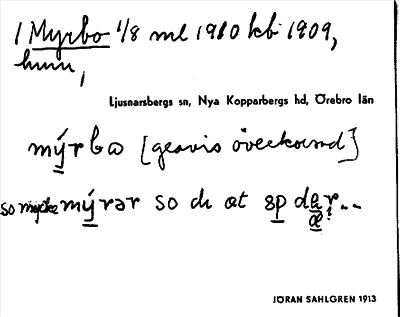 / Myrbo 1/8 ml 1910 kb 1909,
hmn,
Ljusnarsbergs sn, Nya Kopparbergs hd, Örebro län
mýrbo [gravis överkorsad]
so mycke mýrər so dι at sp der...
æ
JÖRAN SAHLGREN 1913